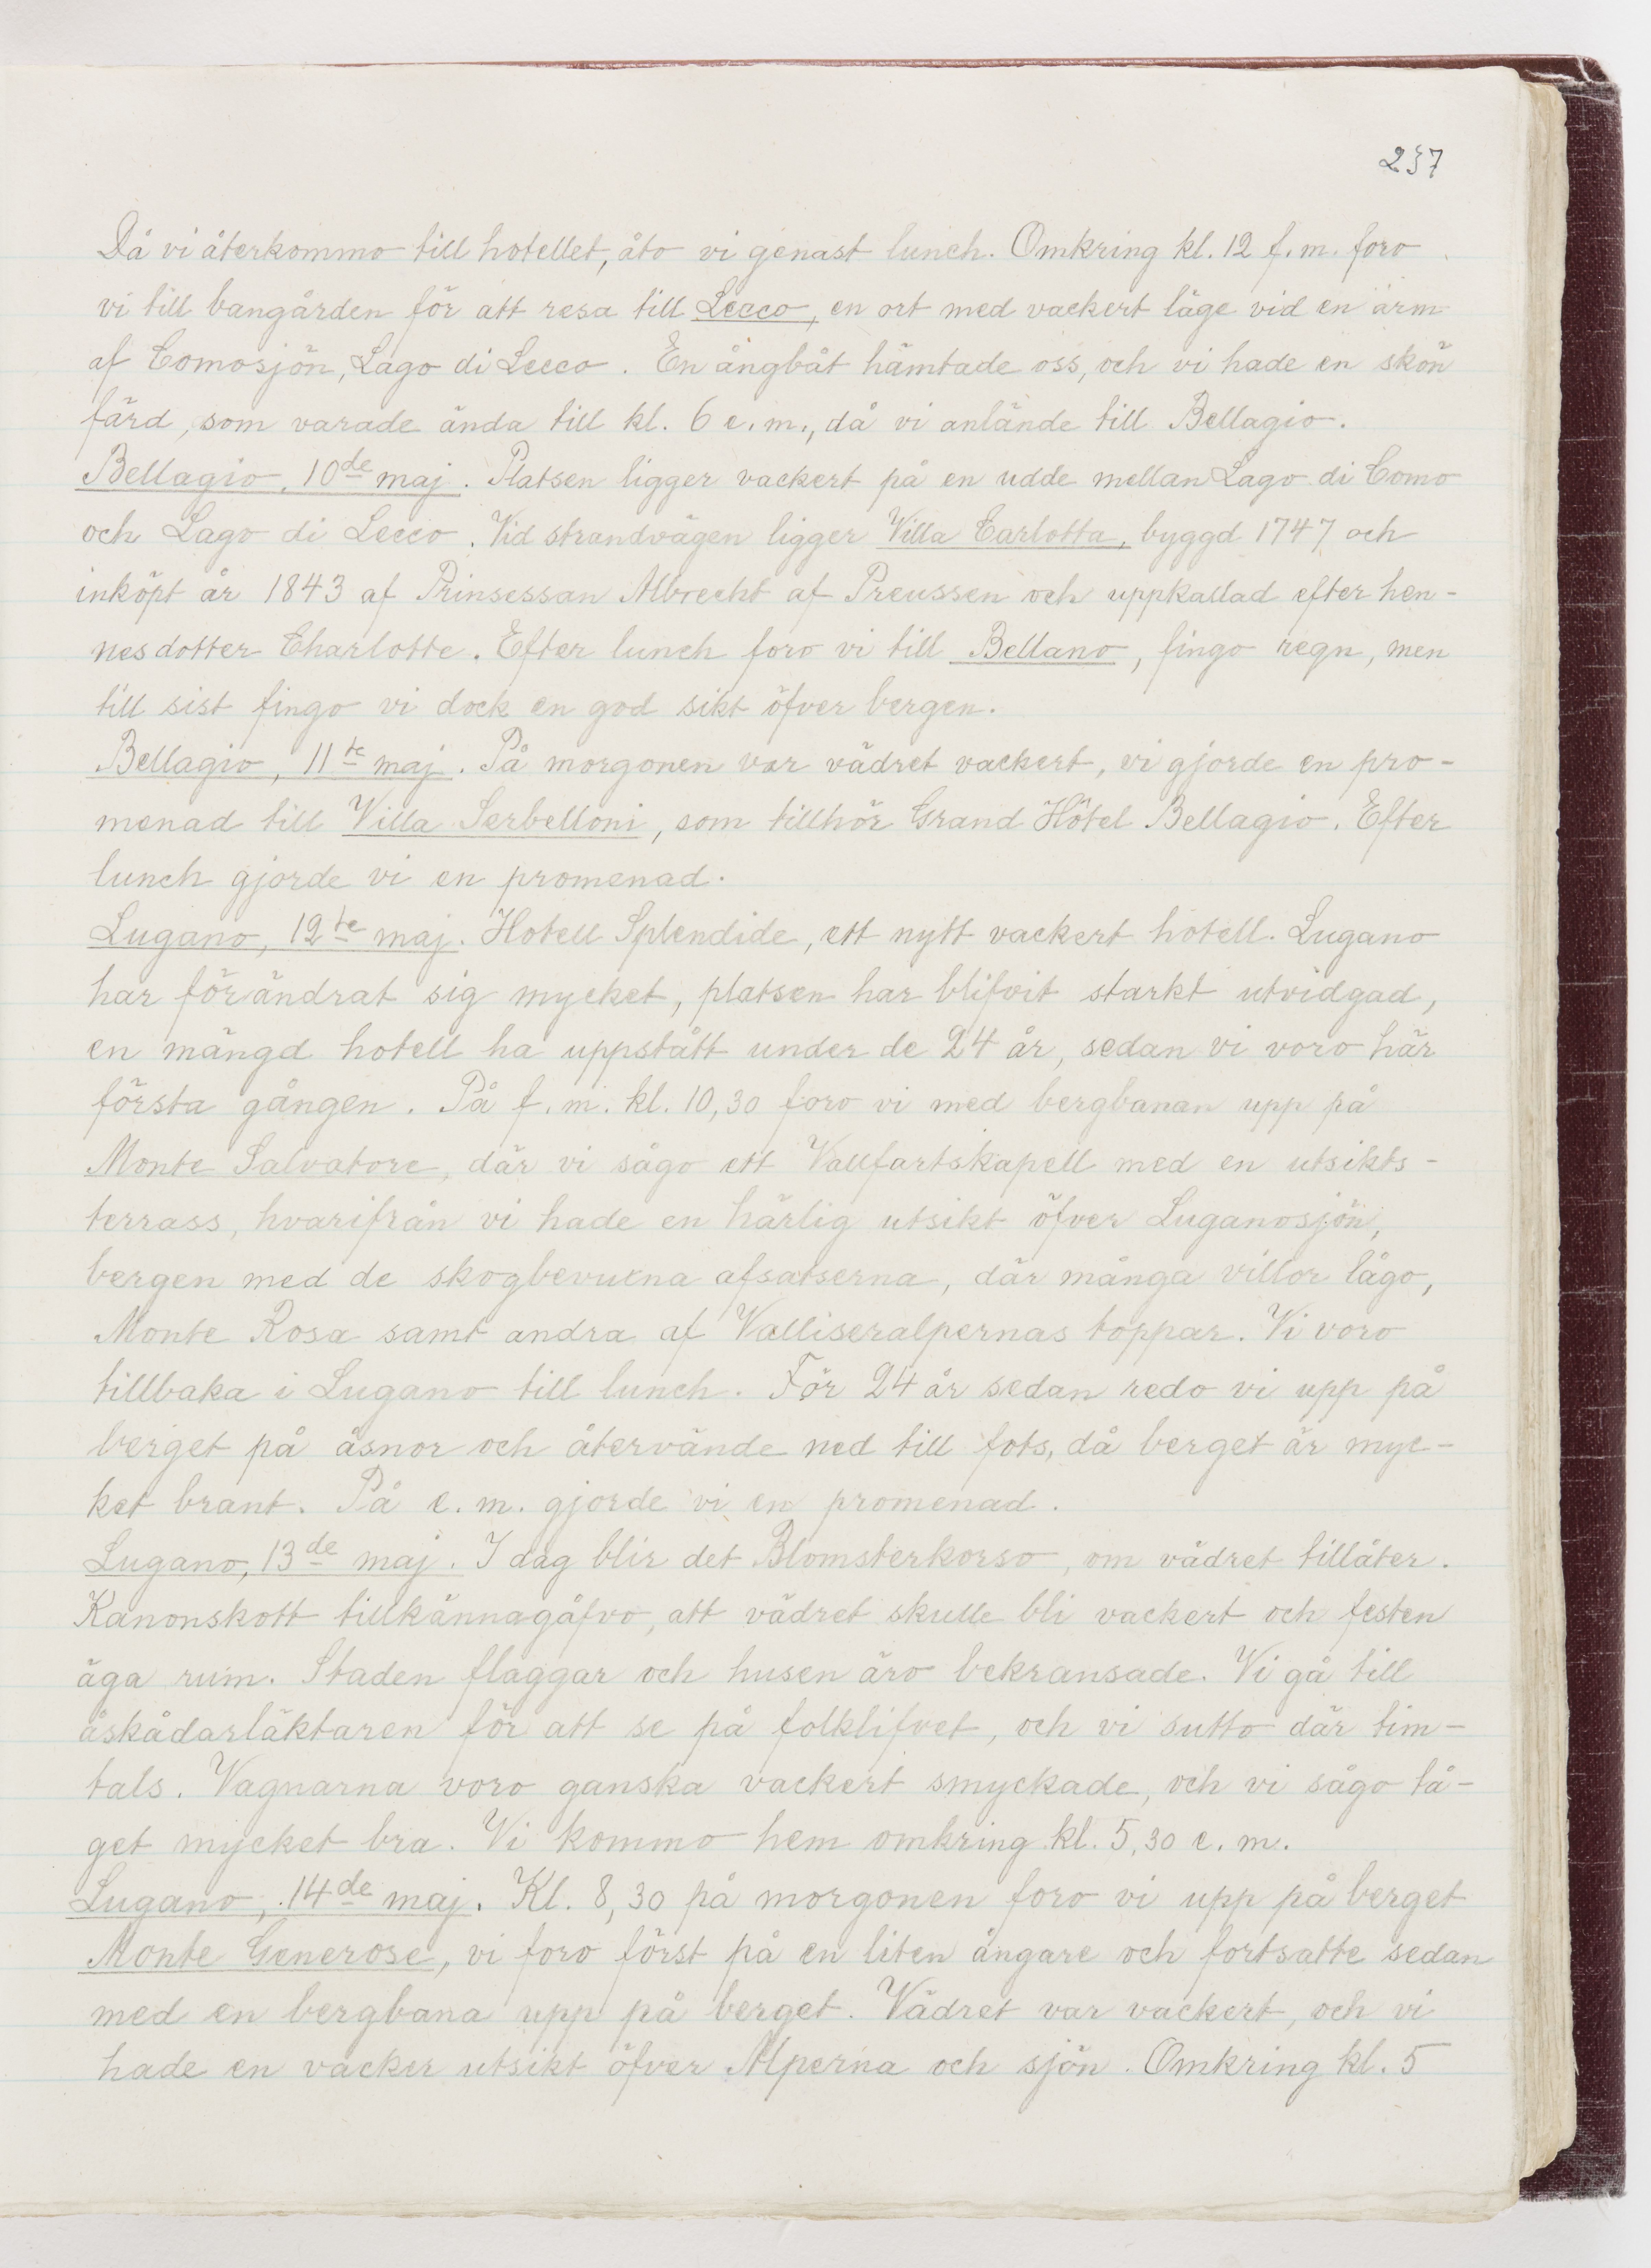 237
Då vi återkommo till hotellet, åto vi genast lunch. Omkring kl. 12 f.m. foro
vi till bangården för att resa till Lecco, en ort med vackert läge vid en ärm
af Comosjön, Lago di Lecco. En ångbåt hämtade oss, och vi hade en skön
färd, som varade ända till kl. 6 e.m., då vi anlände till Bellagio.
Bellagio, 10de maj. Platsen ligger vackert på en udde mellan Lago di Como
och Lago di Lecco. Vid strandvägen ligger Villa Carlotta, byggd 1747 och
inköpt år 1843 af Prinsessan Albrecht af Preussen och uppkallad efter hen-
nes dotter Charlotte. Efter lunch foro vi till Bellano, fingo regn, men
till sist fingo vi dock en god sikt öfver bergen.
Bellagio, 11te maj. På morgonen var vädret vackert, vi gjorde en pro-
menad till Villa Serbelloni, som tillhör Grand Hôtel Bellagio. Efter
lunch gjorde vi en promenad.
Lugano, 12te maj. Hotell Splendide, ett nytt vackert hotell. Lugano
har förändrat sig mycket, platsen har blifvit starkt utvidgad,
en mängd hotell ha uppstått under de 24 år, sedan vi voro här
första gången. På f.m. kl. 10,30 foro vi med bergbanan upp på
Monte Salvatore, där vi sågo ett Vallfartskapell med en utsikts-
terrass, hvarifrån vi hade en härlig utsikt öfver Luganosjön,
bergen med de skogbevuxna afsatserna, där många villor lågo,
Monte Rosa samt andra af Valliseralpernas toppar. Vi voro
tillbaka i Lugano till lunch. För 24 år sedan redo vi upp på
berget på åsnor och återvände ned till fots, då berget är myc-
ket brant. På e.m. gjorde vi en promenad.
Lugano, 13de maj. I dag blir det Blomsterkorso, om vädret tillåter.
Kanonskott tillkännagåfvo, att vädret skulle bli vackert och festen
äga rum. Staden flaggar och husen äro bekransade. Vi gå till
åskådarläktaren för att se på folklifvet, och vi sutto där tim-
tals. Vagnarna voro ganska vackert smyckade, och vi sågo tå-
get mycket bra. Vi kommo hem omkring kl. 5,30 e.m.
Lugano, 14de maj. Kl. 8,30 på morgonen foro vi upp på berget
Monte Generose, vi foro först på en liten ångare och fortsatte sedan
med en bergbana upp på berget. Vädret var vackert, och vi
hade en vacker utsikt öfver Alperna och sjön. Omkring kl. 5